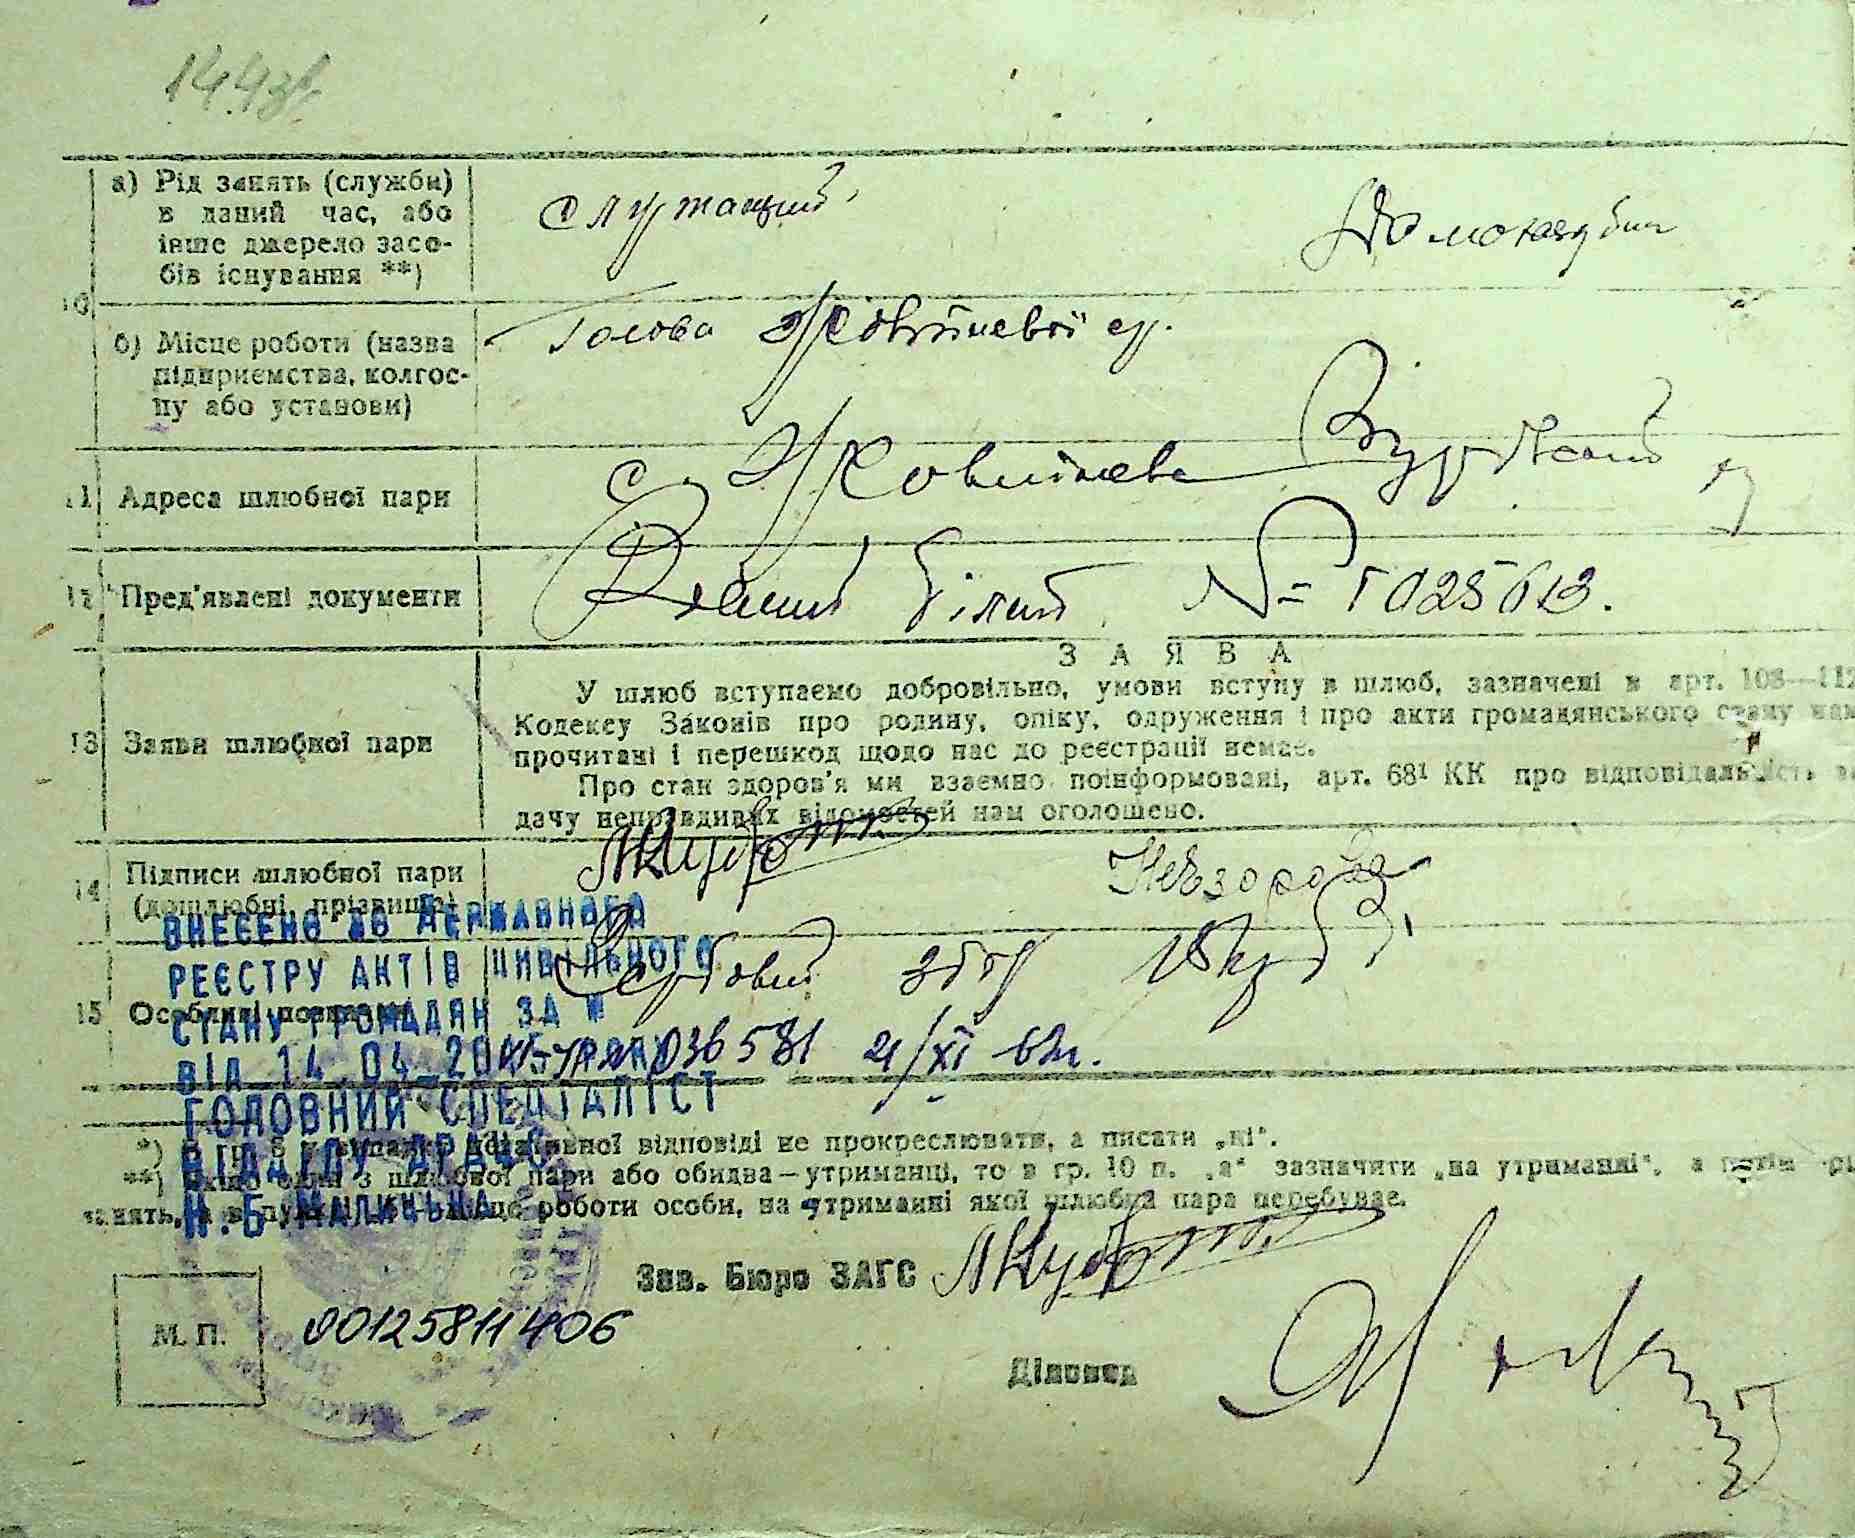 а) Рід занять (служби)
в даний час, або
інше джерело засо-
бів існування **)
служащий
10
б) Місце роботи (назва
підприємства, колгос-
пу або установи)
Голова Жовтневої
11 Адреса шлюбної пари
с. Жовтнева
12 Пред'явлені документи
білет № 1025613.
З А Я В А
13 Заяви шлюбної пари
У шлюб вступаємо добровільно, умови вступу в шлюб, зазначені в арт. 108—112
Кодексу Законів про родину, опіку, одруження і про акти громадянського стану нам
прочитані і перешкод щодо нас до реєстрації немає.
Про стан здоров'я ми взаємно поінформовані, арт. 68¹ КК про відповідальність за
дачу неправдивих відомостей нам оголошено.
14 Підписи шлюбної пари
(дошлюбні прізвища)
Невзорова
15 Особливі
Гербовий збір
036581 21/XI 62г.
ВНЕСЕНО ДО ДЕРЖАВНОГО
РЕЄСТРУ АКТІВ ЦИВІЛЬНОГО
СТАНУ ГРОМАДЯН ЗА №
ВІД 14 04
ГОЛОВНИЙ СПЕЦІАЛІСТ
ВІДДІЛУ ДРАЦС
Н.Б.
відповіді не прокреслювати, а писати „ні“.
**) Якщо один з шлюбної пари або обидва—утриманці, то в гр. 10 п. „а“ зазначити „на утриманні“, а
роботи особи, на утриманні якої шлюбна пара перебуває.
Зав. Бюро ЗАГС
М. П.
00125811406
Діловод